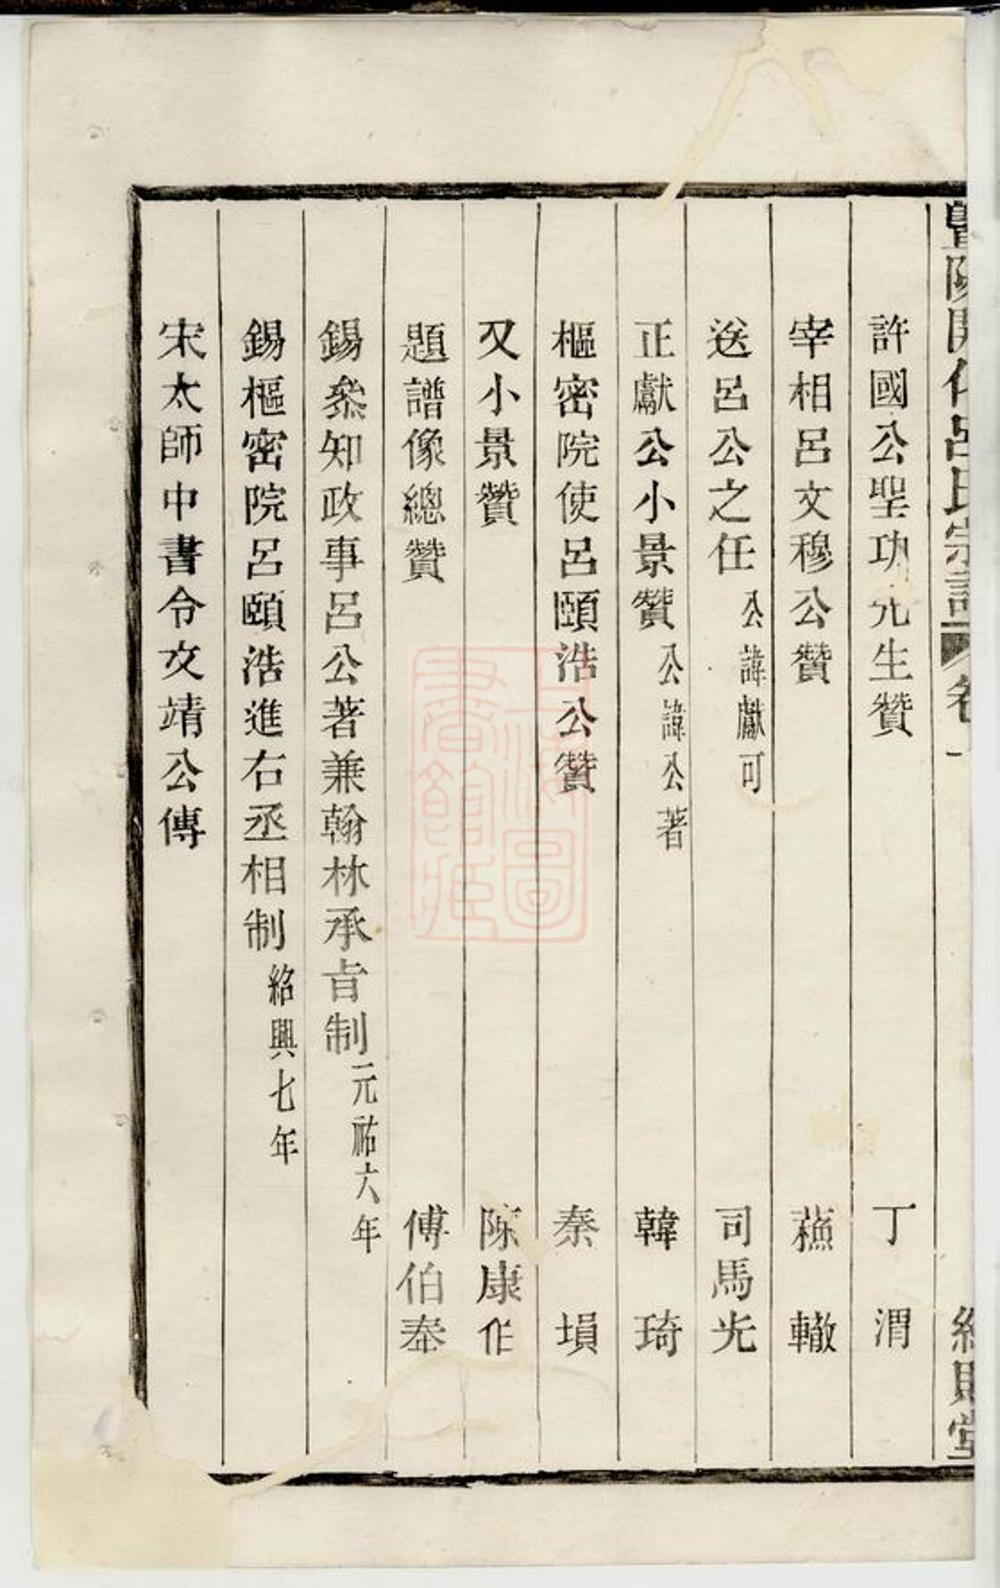 暨陽開化呂氏宗譜 卷一
許國公聖功先生贊 丁渭
宰相呂文穆公贊 蘓轍
送呂公之任 公諱獻可 司馬光
正獻公小景贊 公諱公著 韓琦
樞密院使呂頤浩公贊 秦塤
又小景贊 陳康伯
題譜像總贊 傅伯奉
錫叅知政事呂公著兼翰林承旨制 元祐六年
錫樞密院呂頤浩進右丞相制 紹興七年
宋太師中書令文靖公傳
上海圖
書館藏